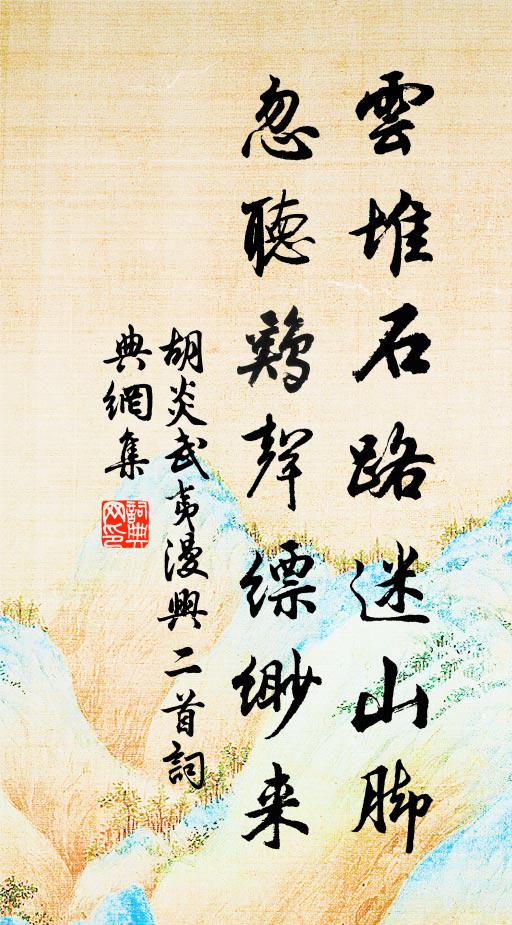 雲堆石路迷山脚
忽聽鷄聲縹緲来
胡炎武夷漫興二首詞
典網集
詞典
网印